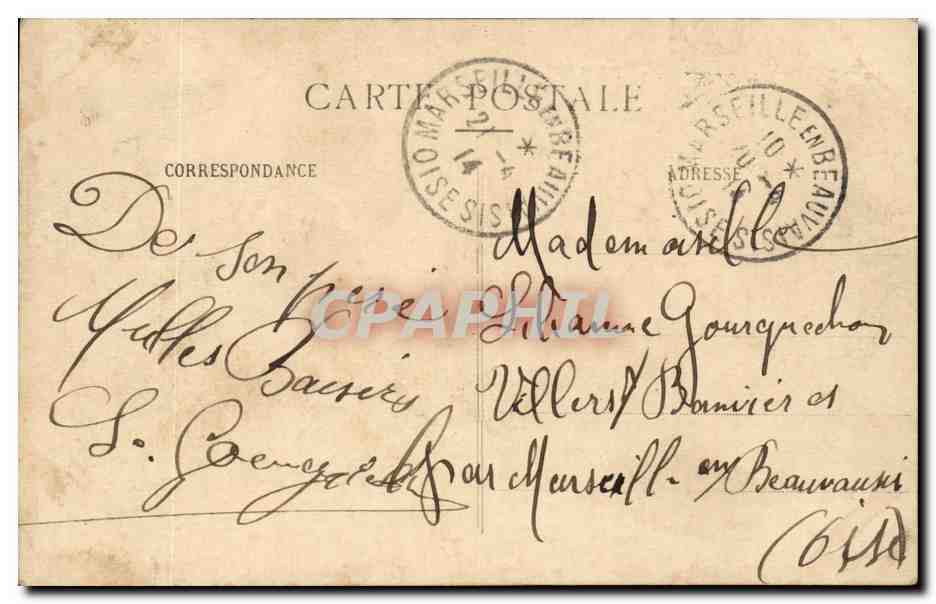 CARTE POSTALE
CORRESPONDANCE
ADRESSE
MARSEILLE EN BEAUVAISIS OISE
14
MARSEILLE EN BEAUVAISIS OISE
10
De son père
Milles Baisers
Mademoiselle
Lilianne Gourguechon
Villers s/ Bonnières
par Marseille en Beauvaisis
(Oise)
CPAPHIL